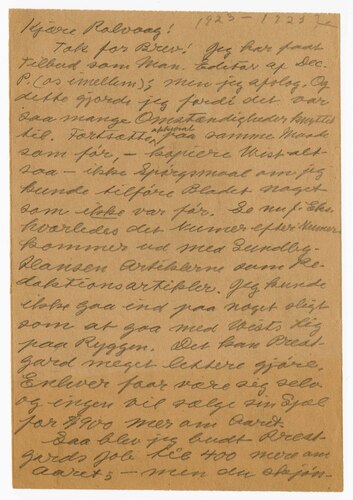 1923-1925
Kjære Rolvaag!
Tak for Brev! Jeg har faat
Tilbud som Man. Editor af Dec-
P. (os imellem); men jeg afslog. Og
dette gjorde jeg fordi det var
saa mange Omstændigheder knyttet
til. Fortsætte, paa samme Maade
som før, – kopiere Wist alt-
saa – ikke Spørgsmaal om jeg
kunde tilføre Bladet noget
som ikke var før. Se nu f. Eks.
hvorledes det Numer efter Numer
kommer ud med Sundby-
Hansen Artiklerne som Re-
daktionsartikler. Jeg kunde
ikke gaa ind paa noget sligt
som at gaa med Wists Lig
paa Ryggen. Det kan Prest-
gard meget lettere gjøre.
Enhver faar være seg selv
og ingen vil sælge sin Sjæl
for $900 mer om Aaret.
Saa blev jeg budt Prest-
gards Job til 400 mere om
Aaret; – men du skjøn-